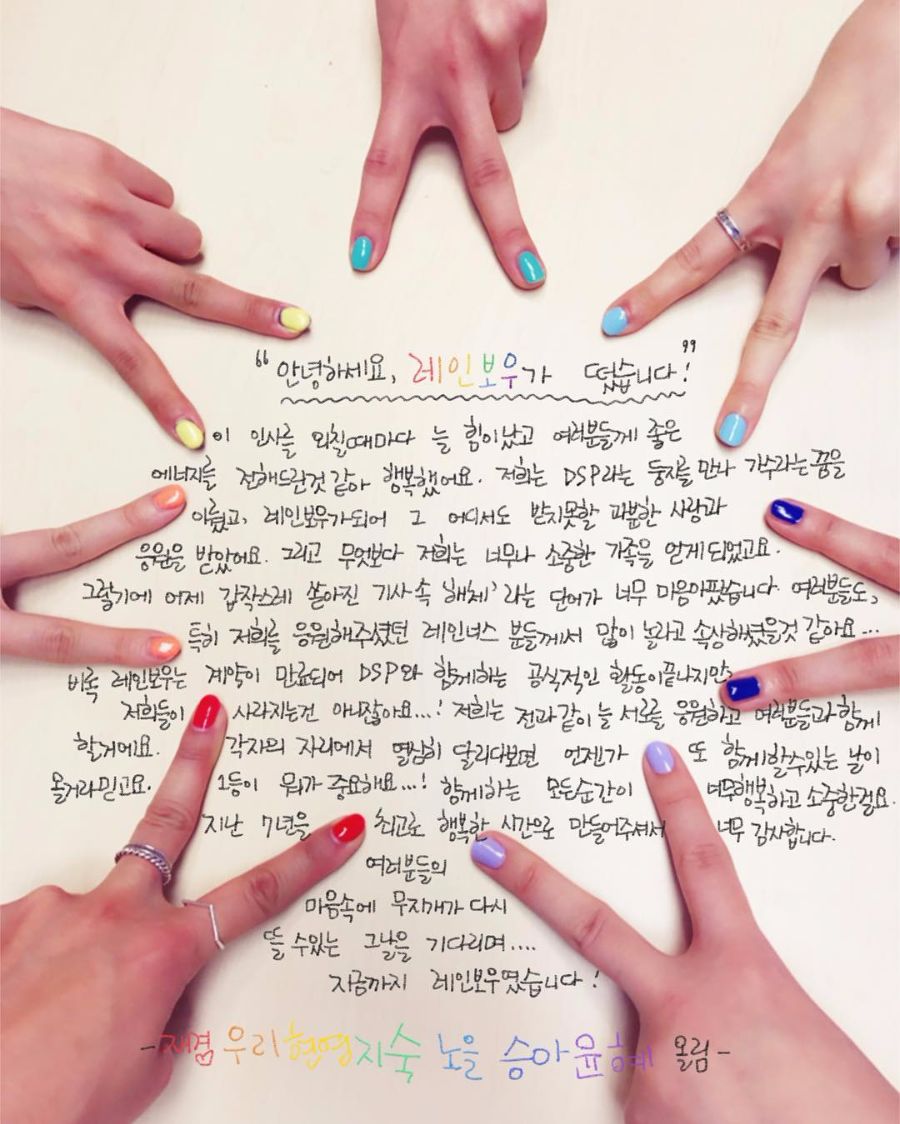 "안녕하세요, 레인보우가 떴습니다!"
이 인사를 외칠때마다 늘 힘이났고 여러분들께 좋은
에너지를 전해드린것 같아 행복했어요. 저희는 DSP라는 둥지를 만나 가수라는 꿈을
이뤘고, 레인보우가되어 그 어디서도 받지못할 과분한 사랑과
응원을 받았어요. 그리고 무엇보다 저희는 너무나 소중한 가족을 얻게되었고요.
그렇기에 어제 갑작스레 쏟아진 기사 속 '해체'라는 단어가 너무 마음아팠습니다. 여러분들도,
특히 저희를 응원해주셨던 레인너스 분들께서 많이 놀라고 속상하셨을것 같아요...
비록 레인보우는 계약이 만료되어 DSP와 함께하는 공식적인 활동이끝나지만,
저희들이 사라지는건 아니잖아요...! 저희는 전과같이 늘 서로를 응원하고 여러분들과 함께
할거에요. 각자의 자리에서 열심히 달리다보면 언젠가 또 함께할수있는 날이
올거라믿고요. 1등이 뭐가 중요해요...! 함께하는 모든순간이 너무행복하고 소중한걸요.
지난 7년을 최고로 행복한 시간으로 만들어주셔서 너무 감사합니다.
여러분들의
마음속에 무지개가 다시
뜰 수있는 그날을 기다리며....
지금까지 레인보우였습니다!
-재경 우리 현영 지숙 노을 승아 윤혜 올림-